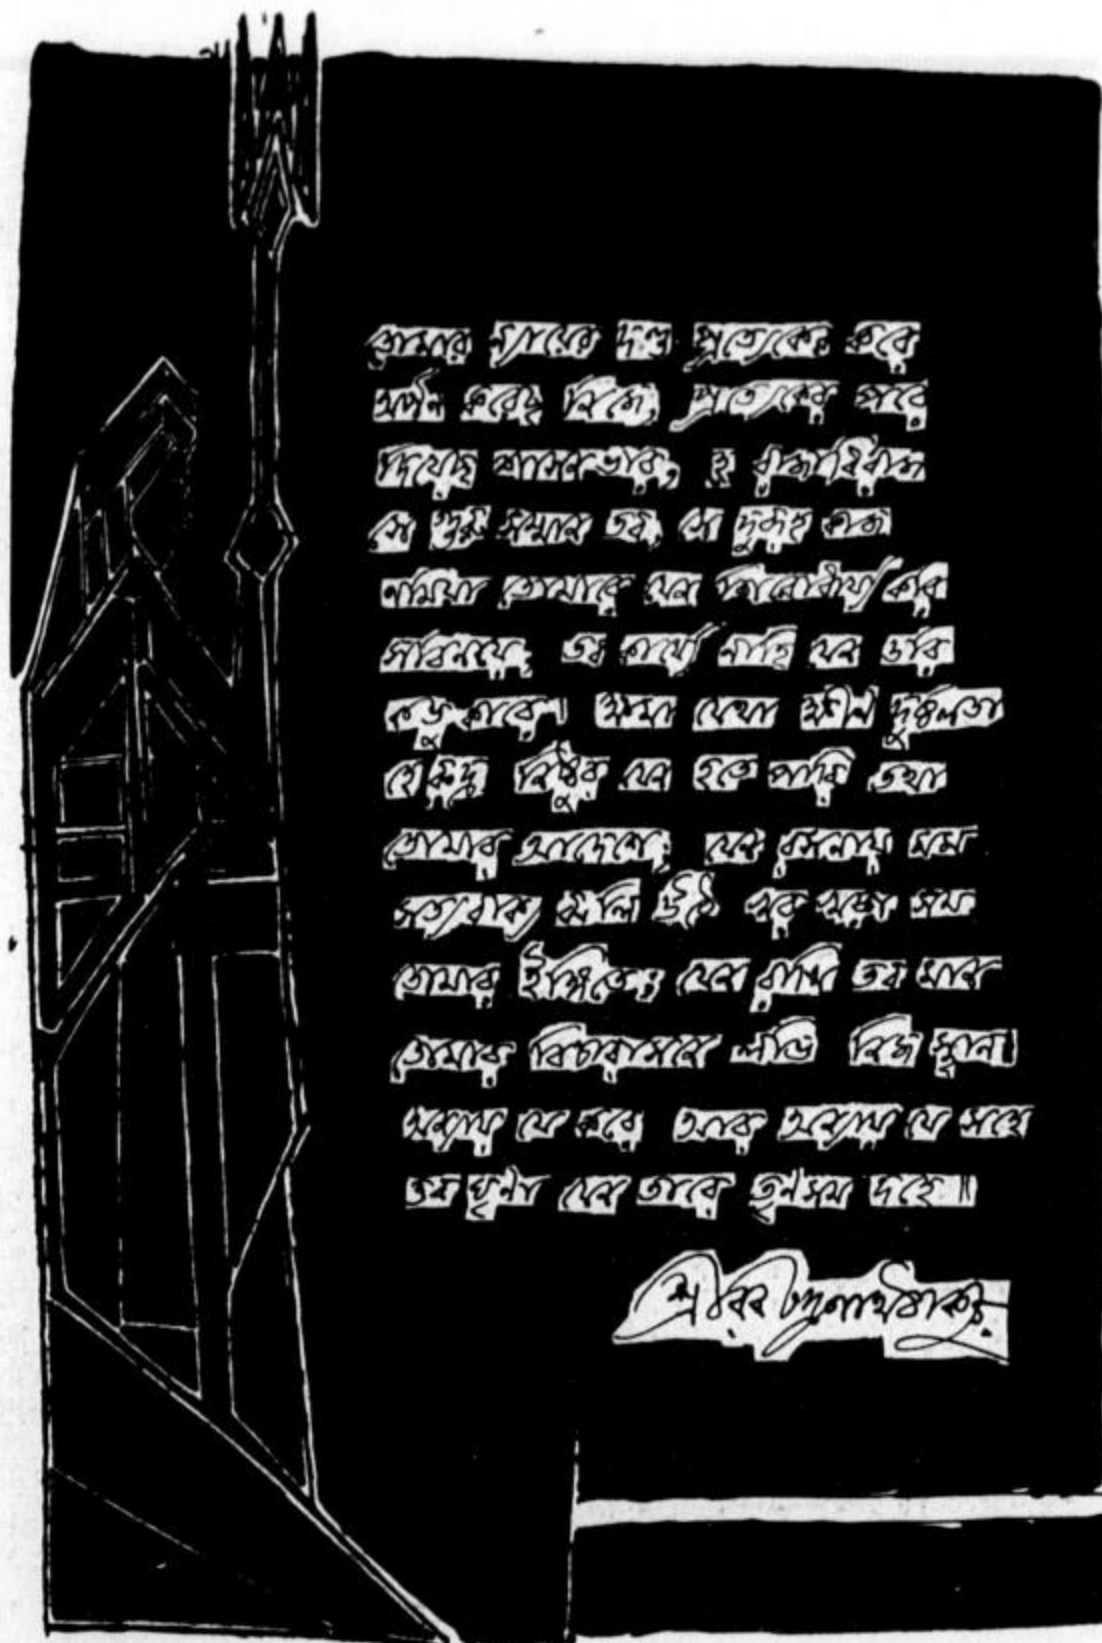 তোমার ন্যায়ের দণ্ড প্রত্যেকের করে
অর্পণ করেছ নিজে, প্রত্যেকের পরে
দিয়েছ শাসনভার, হে রাজাধিরাজ
সে গুরু সম্মান তব, সে দুরূহ কাজ
নমিয়া তোমারে যেন শিরোধার্য্য করি
সবিনয়ে; তব কার্য্যে নাহি যেন ডরি
কভু কারে। ক্ষমা যেথা ক্ষীণ দুর্ব্বলতা
হে রুদ্র নিষ্ঠুর যেন হতে পারি তথা
তোমার আদেশে; যেন রসনায় মম
সত্যবাক্য ঝলি উঠে খর খড়্গ সম
তোমার ইঙ্গিতে; যেন রাখি তব মান
তোমার বিচারাসনে লভি নিজ স্থান।
অন্যায় যে করে আর অন্যায় যে সহে
তব ঘৃণা যেন তারে তৃণসম দহে॥
শ্রীরবীন্দ্রনাথ ঠাকুর